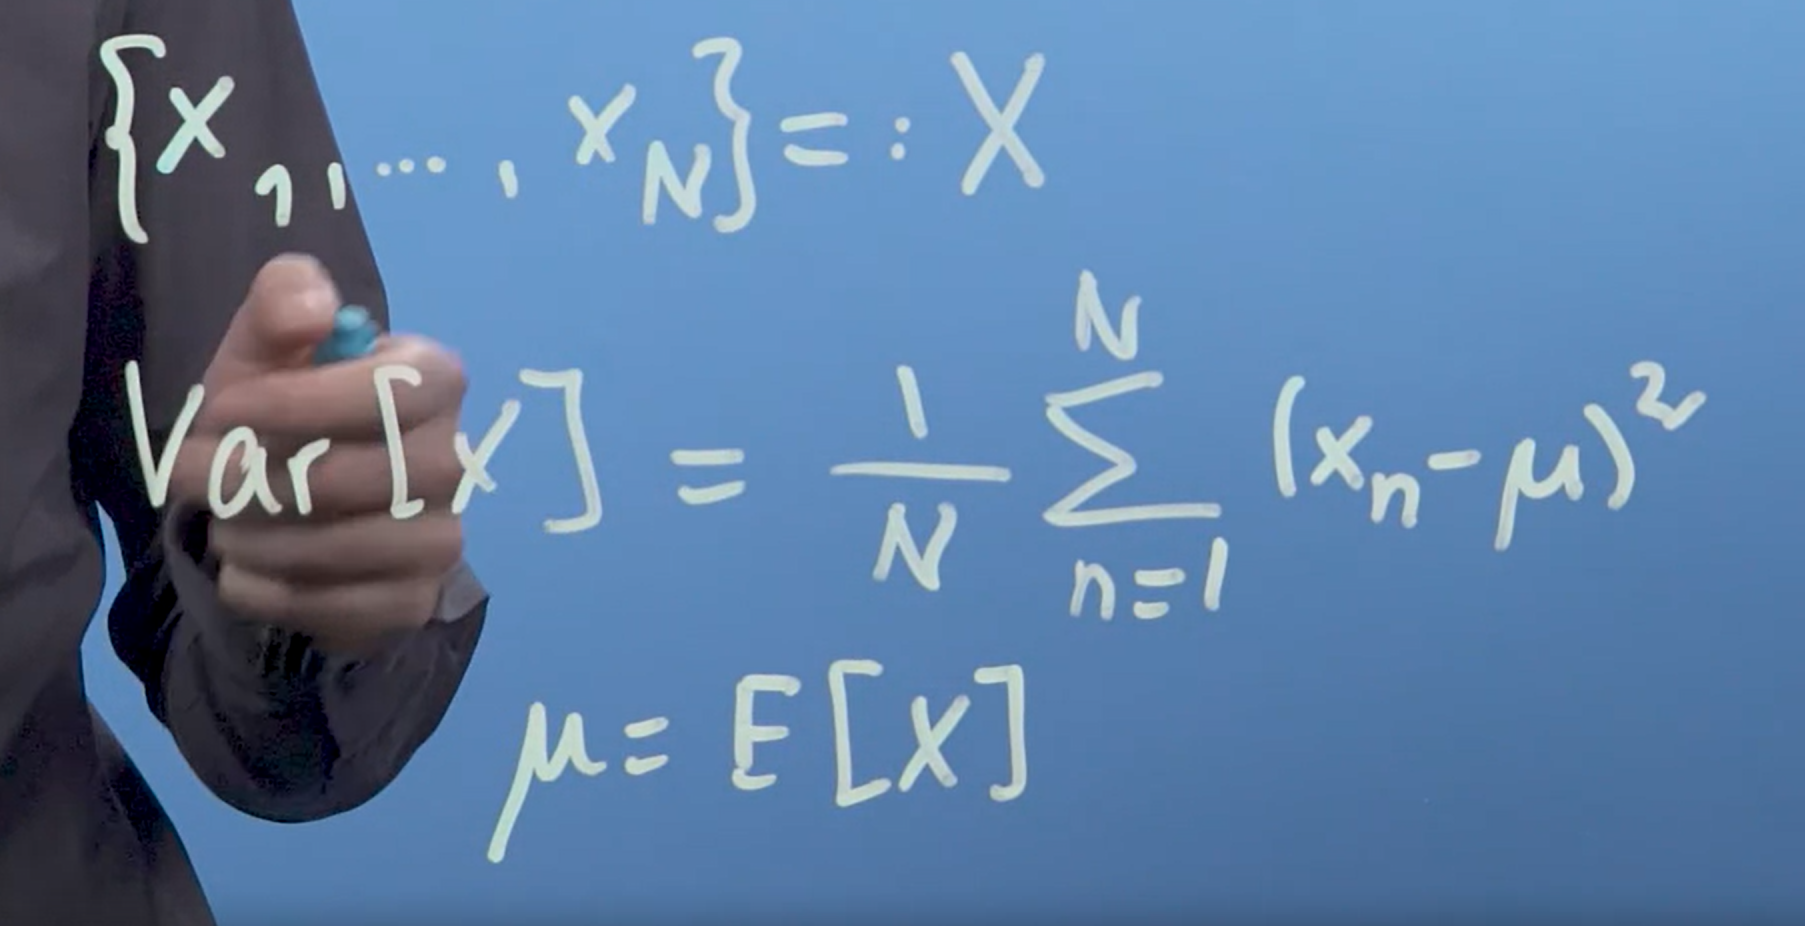 {x₁, ..., x_N} =: X
Var[X] = 1/N ∑_{n=1}^{N} (x_n - μ)²
μ = E[X]